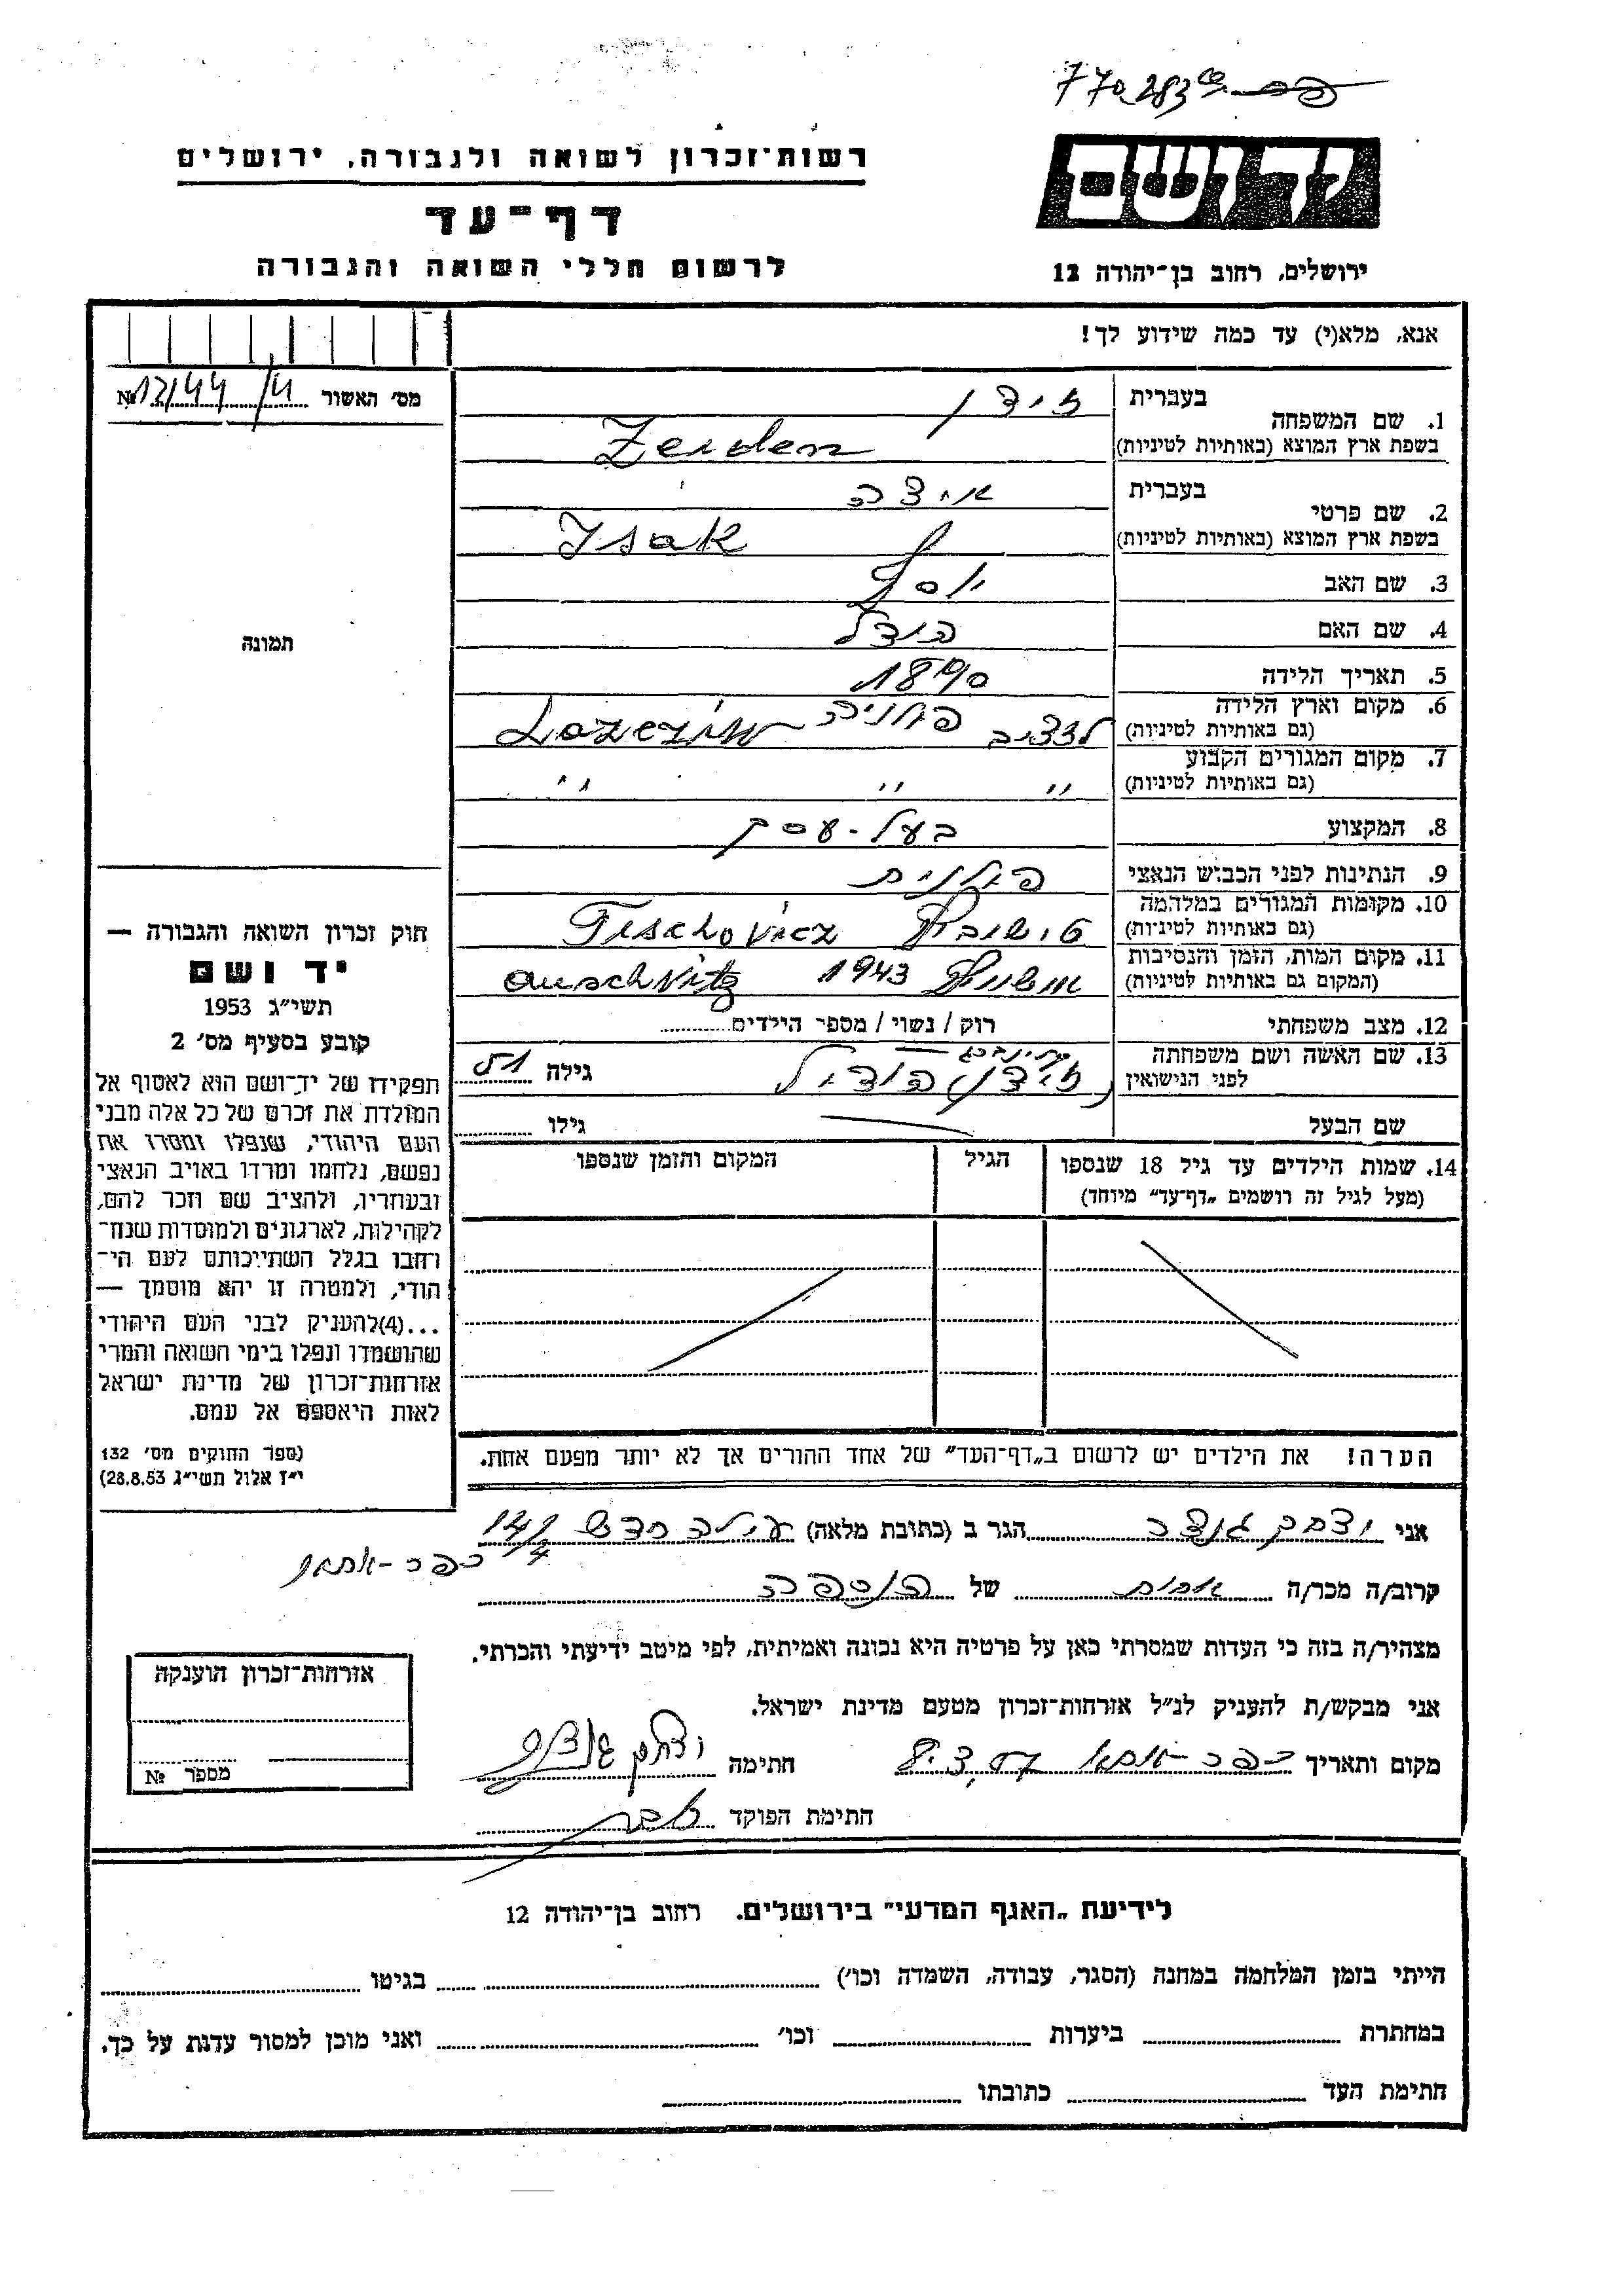 770.283
רשות־זכרון לשואה ולגבורה, ירושלים
יד ושם
דף־עד
לרשום חללי השואה והגבורה
ירושלים, רחוב בן־יהודה 12
אנא, מלא(י) עד כמה שידוע לך!
מס׳ האשור № 12144/4
1. שם המשפחה
בעברית זידן
בשפת ארץ המוצא (באותיות לטיניות) Zeiden
2. שם פרטי
בעברית איצה
בשפת ארץ המוצא (באותיות לטיניות) Isak
3. שם האב יוסף
4. שם האם הודל
5. תאריך הלידה 1890
6. מקום וארץ הלידה
(גם באותיות לטיניות) פולניה Lazczów
7. מקום המגורים הקבוע
(גם באותיות לטיניות) " " "
8. המקצוע בעל-עסק
9. הנתינות לפני הכבוש הנאצי פולנית
10. מקומות המגורים במלחמה
(גם באותיות לטיניות) טישוביץ Tischovicz
11. מקום המות, הזמן והנסיבות
(המקום גם באותיות לטיניות) אושויץ 1943 Auschvitz
12. מצב משפחתי רוק / נשוי / מספר הילדים
13. שם האשה ושם משפחתה
לפני הנישואין זידן הודל גילה 51
שם הבעל גילו
14. שמות הילדים עד גיל 18 שנספו הגיל המקום והזמן שנספו
(מעל לגיל זה רושמים „דף־עד” מיוחד)
הערה! את הילדים יש לרשום ב„דף־העד” של אחד ההורים אך לא יותר מפעם אחת.
תמונה
חוק זכרון השואה והגבורה —
יד ושם
תשי״ג 1953
קובע בסעיף מס׳ 2
תפקידו של יד־ושם הוא לאסוף אל
המולדת את זכרם של כל אלה מבני
העם היהודי, שנפלו ומסרו את
נפשם, נלחמו ומרדו באויב הנאצי
ובעוזריו, ולהציב שם וזכר להם,
לקהילות, לארגונים ולמוסדות שנח־
רחבו בגלל השתייכותם לעם הי־
הודי, ולמטרה זו יהא מוסמך —
...(4)להעניק לבני העם היהודי
שהושמדו ונפלו בימי השואה והמרי
אזרחות־זכרון של מדינת ישראל
לאות היאספם אל עמם.
(ספר החוקים מס׳ 132
י״ז אלול תשי״ג 28.8.53)
אני הגר ב (כתובת מלאה)
כפר-אתא
קרוב/ה מכר/ה של הנספה
מצהיר/ה בזה כי העדות שמסרתי כאן על פרטיה היא נכונה ואמיתית, לפי מיטב ידיעתי והכרתי.
אני מבקש/ת להעניק לנ״ל אזרחות־זכרון מטעם מדינת ישראל.
מקום ותאריך כפר-אתא 8.3.57 חתימה
חתימת הפוקד
אזרחות־זכרון הוענקה
מספר №
לידיעת „האגף המדעי” בירושלים. רחוב בן־יהודה 12
הייתי בזמן המלחמה במחנה (הסגר, עבודה, השמדה וכו׳) בגיטו
במחתרת ביערות וכו׳ ואני מוכן למסור עדות על כך.
חתימת העד כתובתו